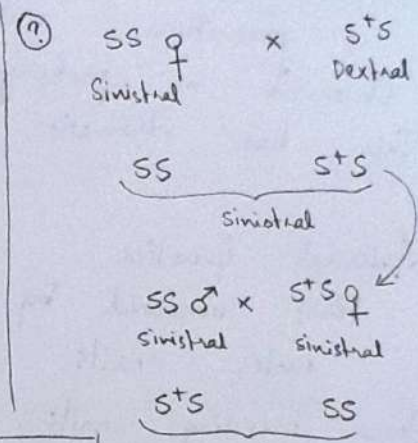 ? SS ♀ × S⁺S
Sinistral Dextral
SS S⁺S
Sinistral
SS ♂ × S⁺S ♀
sinistral sinistral
S⁺S SS